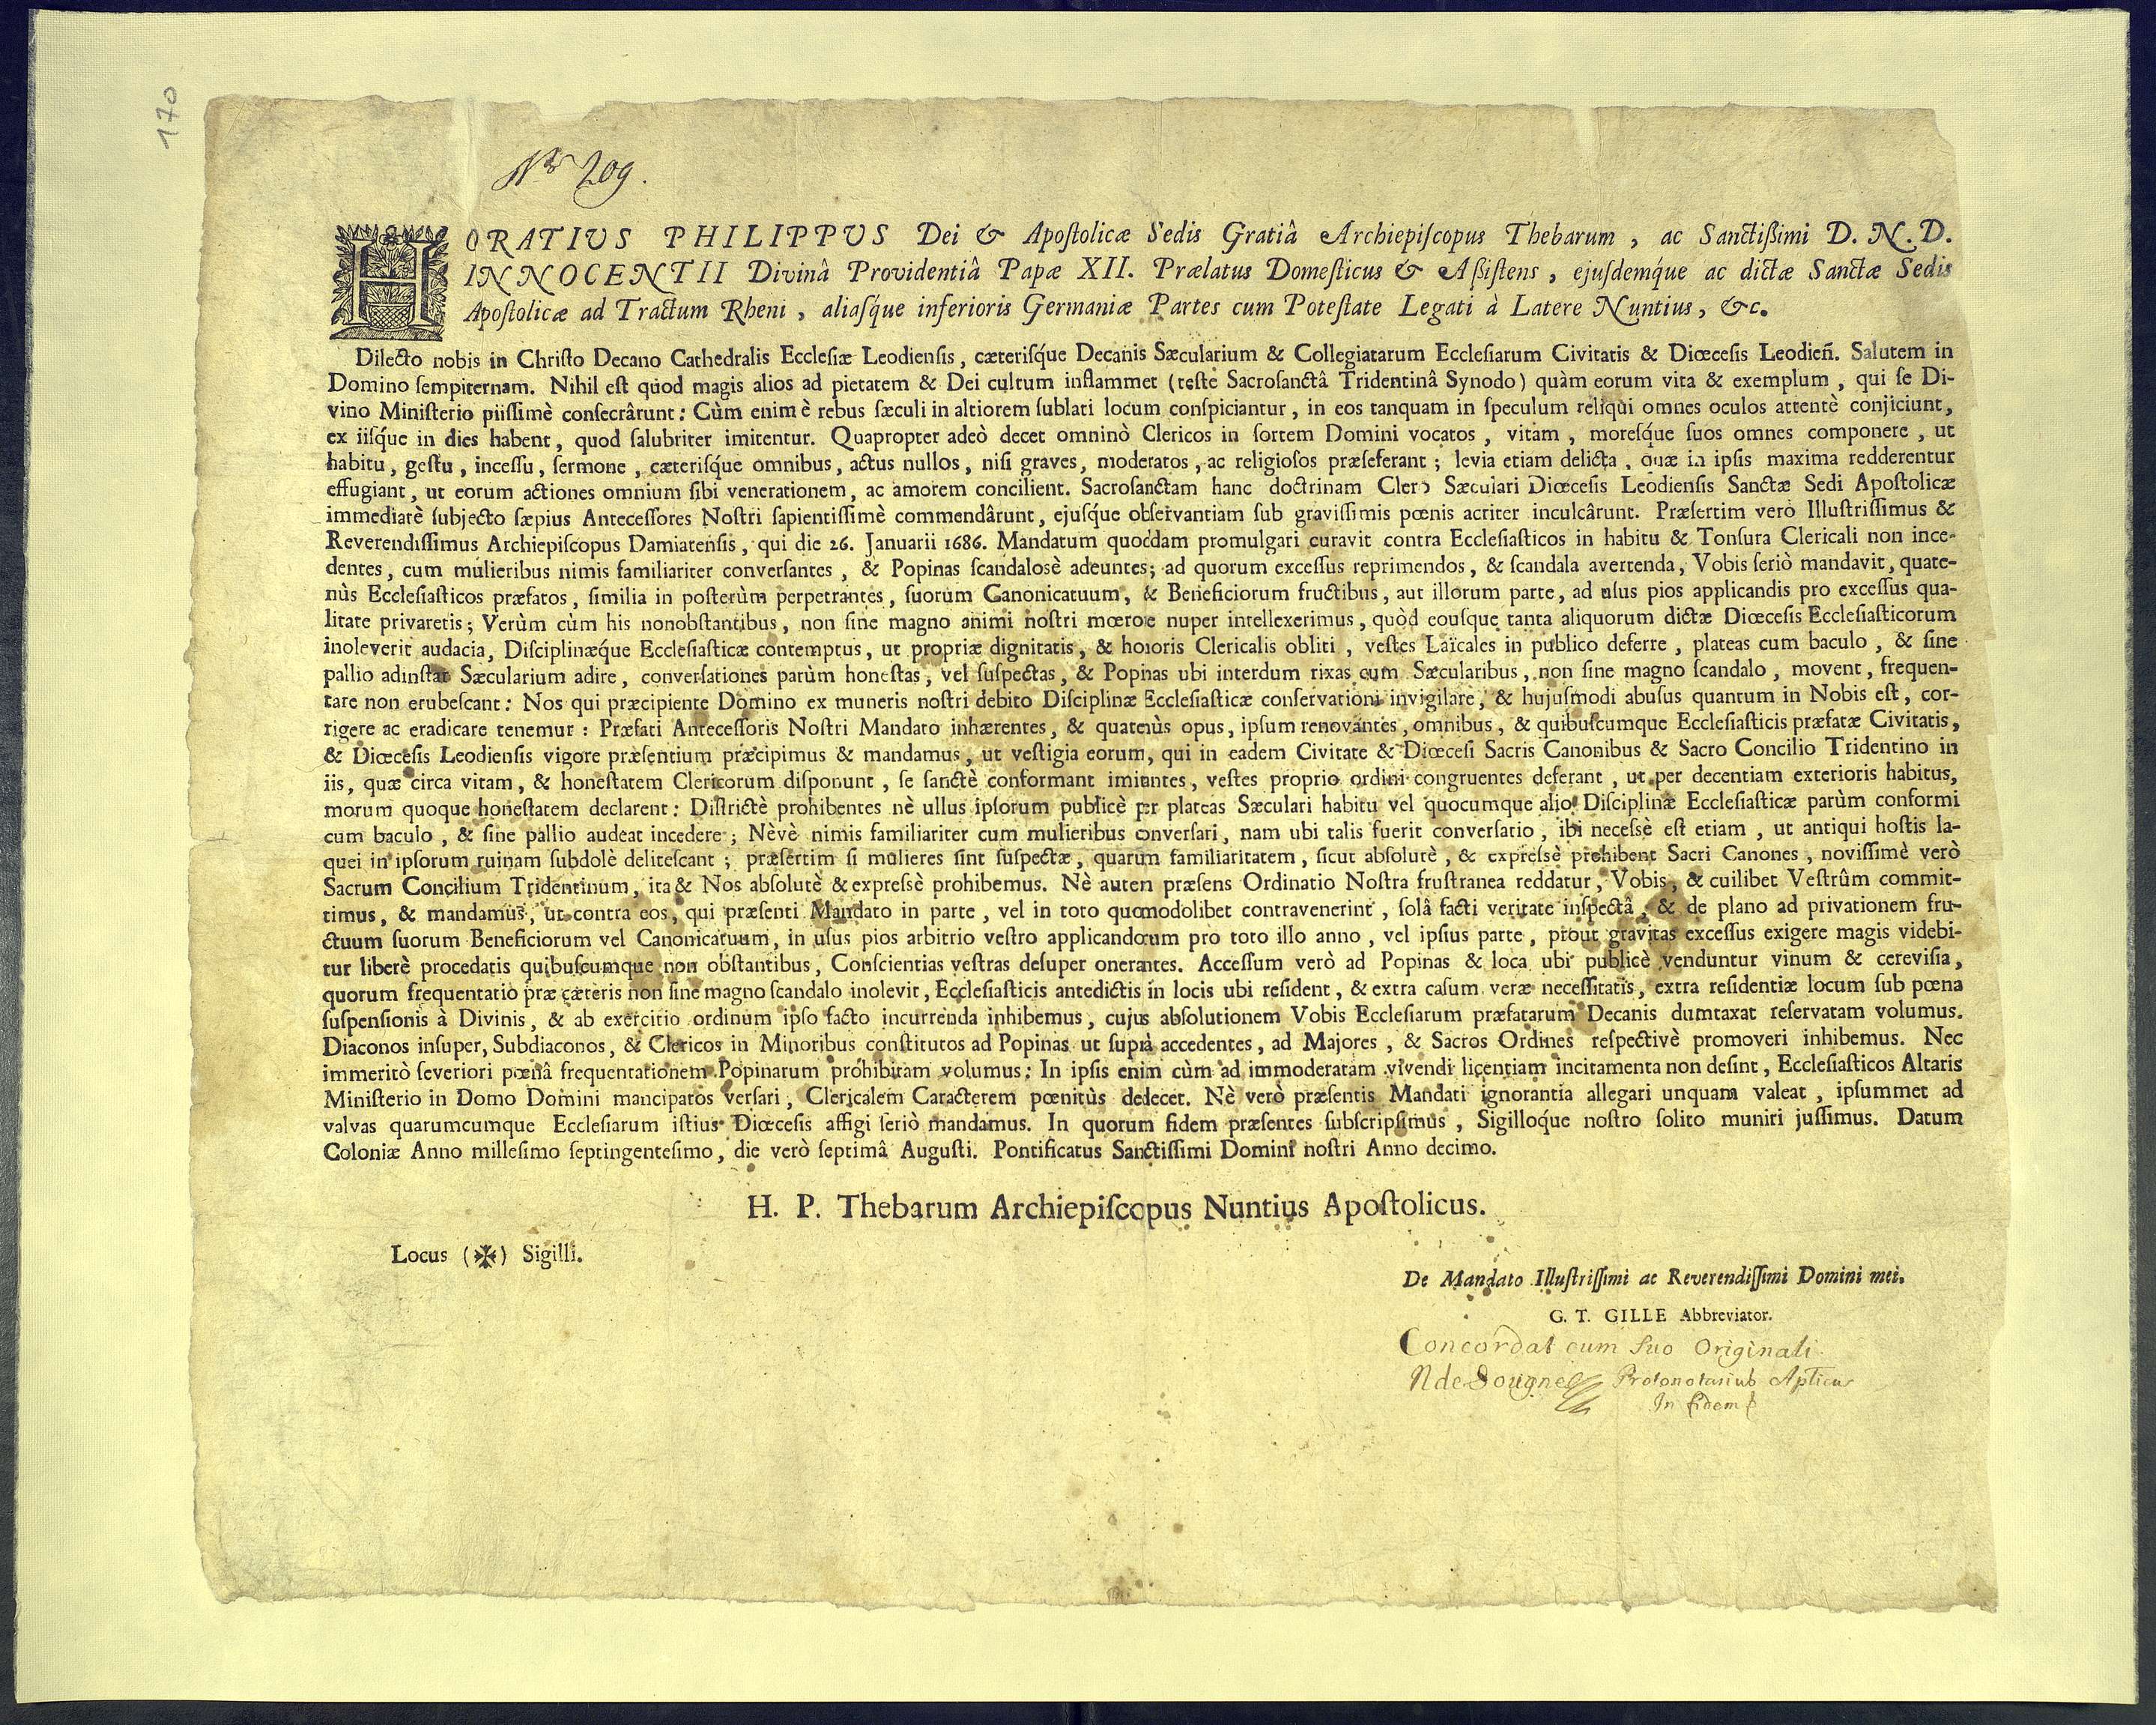 170
Nro 209.
HORATIUS PHILIPPUS Dei & Apoſtolicæ Sedis Gratiâ Archiepiſcopus Thebarum, ac Sanctiſſimi D. N. D.
INNOCENTII Divinâ Providentiâ Papæ XII. Prælatus Domeſticus & Aſſiſtens, ejuſdemq́ue ac dictæ Sanctæ Sedis
Apoſtolicæ ad Tractum Rheni, aliaſq́ue inferioris Germaniæ Partes cum Poteſtate Legati à Latere Nuntius, &c.
Dilecto nobis in Chriſto Decano Cathedralis Eccleſiæ Leodienſis, cæteriſq́ue Decanis Sæcularium & Collegiatarum Eccleſiarum Civitatis & Diœceſis Leodien̄. Salutem in
Domino ſempiternam. Nihil eſt quod magis alios ad pietatem & Dei cultum inflammet (teſte Sacroſanctâ Tridentinâ Synodo) quàm eorum vita & exemplum, qui ſe Di-
vino Miniſterio piiſſimè conſecrârunt: Cùm enim è rebus ſæculi in altiorem ſublati locum conſpiciantur, in eos tanquam in ſpeculum reliqui omnes oculos attentè conjiciunt,
ex iiſq́ue in dies habent, quod ſalubriter imitentur. Quapropter adeò decet omninò Clericos in ſortem Domini vocatos, vitam, moreſq́ue ſuos omnes componere, ut
habitu, geſtu, inceſſu, ſermone, cæteriſq́ue omnibus, actus nullos, niſi graves, moderatos, ac religioſos præſeferant; levia etiam delicta, quæ in ipſis maxima redderentur
effugiant, ut eorum actiones omnium ſibi venerationem, ac amorem concilient. Sacroſanctam hanc doctrinam Clero Sæculari Diœceſis Leodienſis Sanctæ Sedi Apoſtolicæ
immediatè ſubjecto ſæpius Anteceſſores Noſtri ſapientiſſimè commendârunt, ejuſq́ue obſervantiam ſub graviſſimis pœnis acriter inculcârunt. Præſertim verò Illuſtriſſimus &
Reverendiſſimus Archiepiſcopus Damiatenſis, qui die 26. Januarii 1686. Mandatum quoddam promulgari curavit contra Eccleſiaſticos in habitu & Tonſura Clericali non ince-
dentes, cum mulieribus nimis familiariter converſantes, & Popinas ſcandalosè adeuntes; ad quorum exceſſus reprimendos, & ſcandala avertenda, Vobis ſeriò mandavit, quate-
nùs Eccleſiaſticos præfatos, ſimilia in poſterùm perpetrantes, ſuorum Canonicatuum, & Beneficiorum fructibus, aut illorum parte, ad uſus pios applicandis pro exceſſus qua-
litate privaretis; Verùm cùm his nonobſtantibus, non ſine magno animi noſtri mœrore nuper intellexerimus, quòd eouſque tanta aliquorum dictæ Diœceſis Eccleſiaſticorum
inoleverit audacia, Diſciplinæq́ue Eccleſiaſticæ contemptus, ut propriæ dignitatis, & honoris Clericalis obliti, veſtes Laïcales in publico deferre, plateas cum baculo, & ſine
pallio adinſtar Sæcularium adire, converſationes parùm honeſtas, vel ſuſpectas, & Popinas ubi interdum rixas cum Sæcularibus, non ſine magno ſcandalo, movent, frequen-
tare non erubeſcant: Nos qui præcipiente Domino ex muneris noſtri debito Diſciplinæ Eccleſiaſticæ conſervationi invigilare, & hujuſmodi abuſus quantum in Nobis eſt, cor-
rigere ac eradicare tenemur: Præfati Anteceſſoris Noſtri Mandato inhærentes, & quatenùs opus, ipſum renovantes, omnibus, & quibuſcumque Eccleſiaſticis præfatæ Civitatis,
& Diœceſis Leodienſis vigore præſentium præcipimus & mandamus, ut veſtigia eorum, qui in eadem Civitate & Diœceſi Sacris Canonibus & Sacro Concilio Tridentino in
iis, quæ circa vitam, & honeſtatem Clericorum diſponunt, ſe ſanctè conformant imitantes, veſtes proprio ordini congruentes deferant, ut per decentiam exterioris habitus,
morum quoque honeſtatem declarent: Diſtrictè prohibentes nè ullus ipſorum publicè per plateas Sæculari habitu vel quocumque alio Diſciplinæ Eccleſiaſticæ parùm conformi
cum baculo, & ſine pallio audeat incedere; Nèvè nimis familiariter cum mulieribus converſari, nam ubi talis fuerit converſatio, ibi neceſsè eſt etiam, ut antiqui hoſtis la-
quei in ipſorum ruinam ſubdolè deliteſcant; præſertim ſi mulieres ſint ſuſpectæ, quarum familiaritatem, ſicut abſolutè, & expreſsè prohibent Sacri Canones, noviſſimè verò
Sacrum Concilium Tridentinum, ita & Nos abſolutè & expreſsè prohibemus. Nè autem præſens Ordinatio Noſtra fruſtranea reddatur, Vobis, & cuilibet Veſtrûm commit-
timus, & mandamus, ut contra eos, qui præſenti Mandato in parte, vel in toto quomodolibet contravenerint, ſolâ facti veritate inſpectâ, & de plano ad privationem fru-
ctuum ſuorum Beneficiorum vel Canonicatuum, in uſus pios arbitrio veſtro applicandorum pro toto illo anno, vel ipſius parte, prout gravitas exceſſus exigere magis videbi-
tur liberè procedatis quibuſcumque non obſtantibus, Conſcientias veſtras deſuper onerantes. Acceſſum verò ad Popinas & loca ubi publicè venduntur vinum & cereviſia,
quorum frequentatio præ cæteris non ſine magno ſcandalo inolevit, Eccleſiaſticis antedictis in locis ubi reſident, & extra caſum veræ neceſſitatis, extra reſidentiæ locum ſub pœna
ſuſpenſionis à Divinis, & ab exercitio ordinum ipſo facto incurrenda inhibemus, cujus abſolutionem Vobis Eccleſiarum præfatarum Decanis dumtaxat reſervatam volumus.
Diaconos inſuper, Subdiaconos, & Clericos in Minoribus conſtitutos ad Popinas ut ſuprà accedentes, ad Majores, & Sacros Ordines reſpectivè promoveri inhibemus. Nec
immeritò ſeveriori pœnâ frequentationem Popinarum prohibitam volumus: In ipſis enim cùm ad immoderatam vivendi licentiam incitamenta non deſint, Eccleſiaſticos Altaris
Miniſterio in Domo Domini mancipatos verſari, Clericalem Caracterem pœnitùs dedecet. Nè verò præſentis Mandati ignorantia allegari unquam valeat, ipſummet ad
valvas quarumcumque Eccleſiarum iſtius Diœceſis affigi ſeriò mandamus. In quorum fidem præſentes ſubſcripſimus, Sigilloq́ue noſtro ſolito muniri juſſimus. Datum
Coloniæ Anno milleſimo ſeptingenteſimo, die verò ſeptimâ Auguſti. Pontificatus Sanctiſſimi Domini noſtri Anno decimo.
H. P. Thebarum Archiepiſcopus Nuntius Apoſtolicus.
Locus (✠) Sigilli.
De Mandato Illuſtriſſimi ac Reverendiſſimi Domini mei.
G. T. GILLE Abbreviator.
Concordat cum Suo Originali
Protonotarius Apticus
In fidem